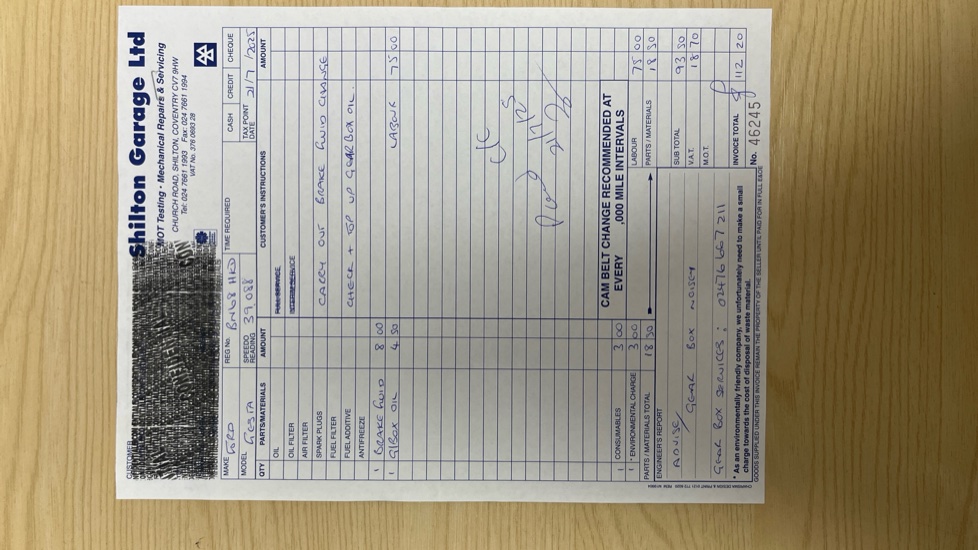 Shilton Garage Ltd
MOT Testing - Mechanical Repairs & Servicing
CHURCH ROAD, SHILTON, COVENTRY CV7 9HW
Tel: 024 7661 1993 Fax: 024 7661 1994
VAT No. 376 0693 28
CUSTOMER
MAKE FORD REG No. BN68 HKD TIME REQUIRED CASH CREDIT CHEQUE
MODEL FIESTA SPEEDO READING 39,088 TAX POINT DATE 21/7/2025
QTY PARTS/MATERIALS AMOUNT CUSTOMER'S INSTRUCTIONS AMOUNT
OIL FULL SERVICE
OIL FILTER INTERIM SERVICE
AIR FILTER
SPARK PLUGS CARRY OUT BRAKE FLUID CHANGE
FUEL FILTER
FUEL ADDITIVE CHECK + TOP UP GEARBOX OIL.
ANTIFREEZE
1 BRAKE FLUID 8 00
1 G/BOX OIL 4 50 LABOUR 75 00
CAM BELT CHANGE RECOMMENDED AT
EVERY ,000 MILE INTERVALS
1 CONSUMABLES 3 00
1 * ENVIRONMENTAL CHARGE 3 00 LABOUR 75 00
PARTS / MATERIALS TOTAL 18 50 PARTS / MATERIALS 18 50
ENGINEER'S REPORT
ADVISE/ GEAR BOX NOISEY
GEAR BOX SERVICES : 02476 667 211
SUB TOTAL 93 50
V.A.T. 18 70
M.O.T.
INVOICE TOTAL 112 20
* As an environmentally friendly company, we unfortunately need to make a small
charge towards the cost of disposal of waste material.
No. 46245
GOODS SUPPLIED UNDER THIS INVOICE REMAIN THE PROPERTY OF THE SELLER UNTIL PAID FOR IN FULL E&OE